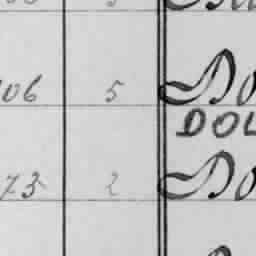 06 5 Do
DOL
73 2 Do